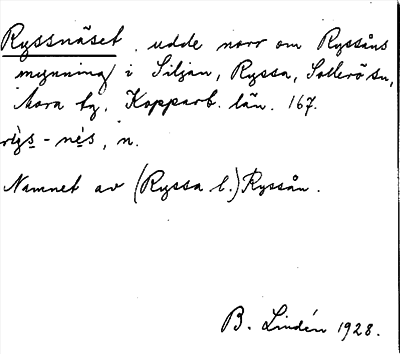 Ryssnäset, udde norr om Ryssåns
mynning i Siljan, Ryssa, Sollerö sn,
Mora tg, Kopparb. län. 167.
rìgs-nès, n.
Namnet av (Ryssa l.) Ryssån.
B. Lindén 1928.